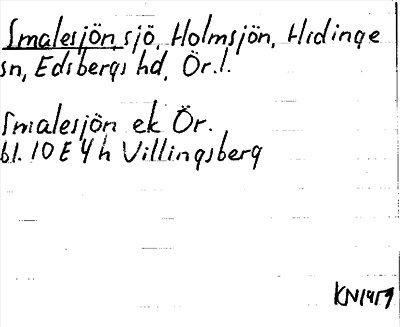 Smalesjön, sjö, Holmsjön, Hidinge
sn, Edsbergs hd, Ör.l.
Smalesjön ek Ör.
bl. 10 E 4 h Villingsberg